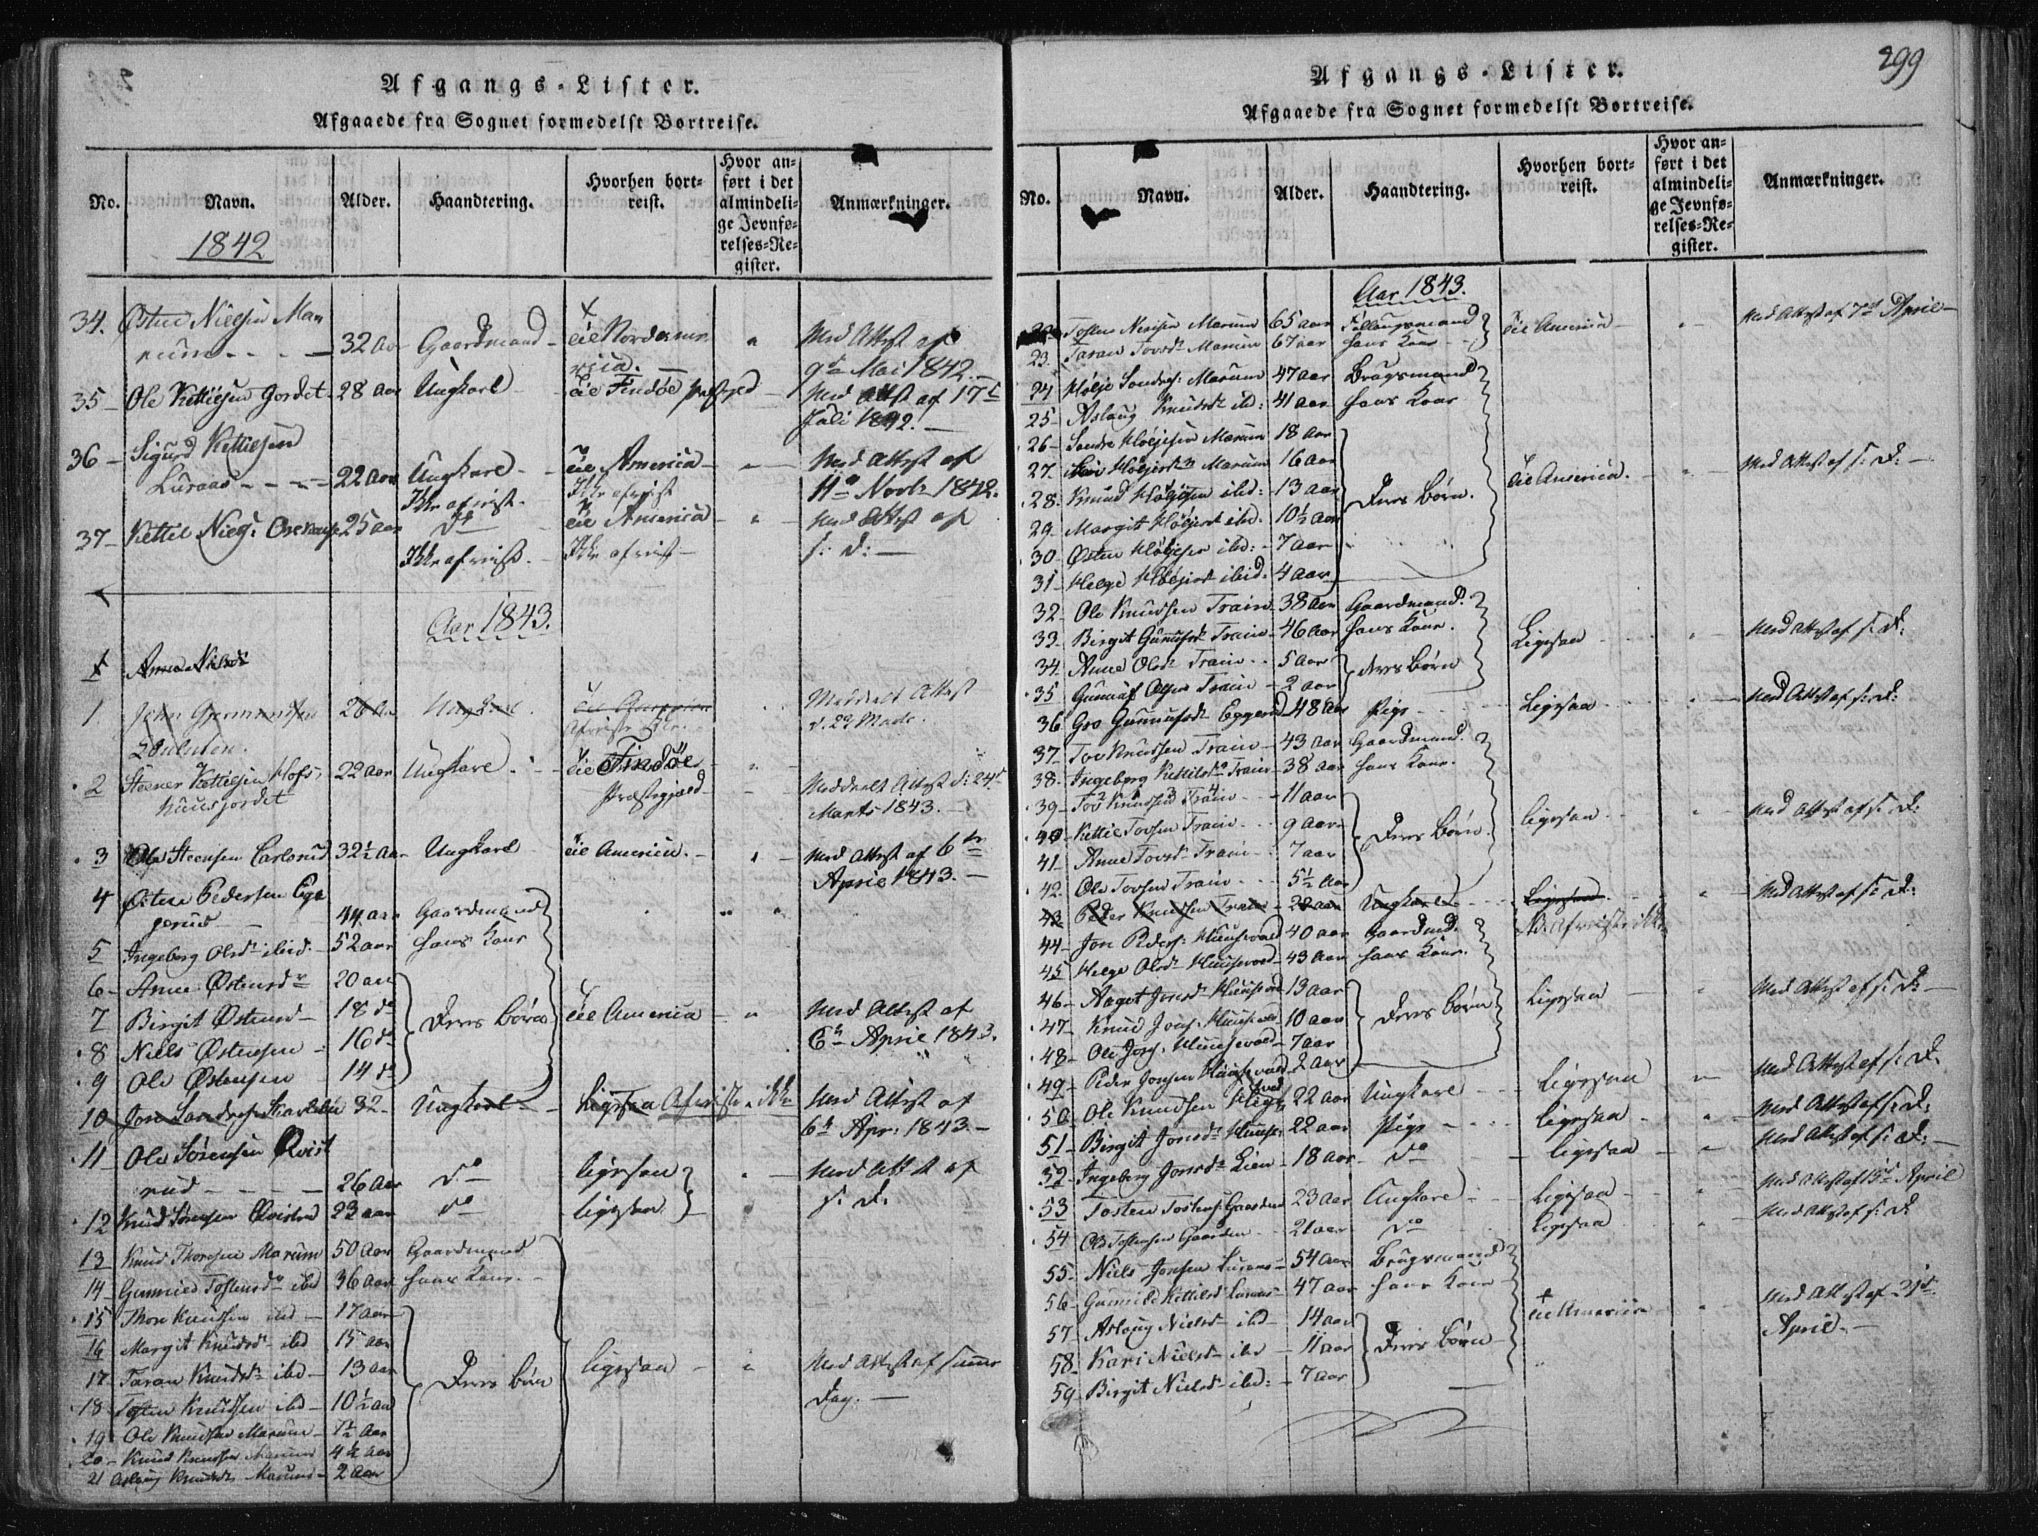 Afgangs-Lister.
Afgaaede fra Sognet formedelst Bortreise.
No. Navn. Alder. Haandtering. Hvorhen bortreist. Hvor anført i det almindelige Jevnførelses-Register. Anmærkninger.
1842
34. Østen Nielsen Ma-
rum - - - 32 Aar Gaardmand - til Nordame- " Med Attest af
rica. - 9de Mai 1842. -
35 - Ole Kittilsen Jordet - 28 Aar Ungkarl til Tindøe Præstgjeld - Med Attest af 17de
Juli 1842. -
36 - Sigurd Kittilsen
Luraas - - - 22 Aar Ungkarl - til America - " - Med Attest af
Ikke afreist. Ikke afreist 11te Novbr 1842.
37 - Kittil Niels. 25 Aar do - til America - " Med Attest af
Ikke afreist. - Ikke afreist - s: D: -
Aar 1843.
1 Anne Nielsd
1 John Gjermundsen 26 Aar Ungkarl. til America Meddelt Attest
afreiste ikke. d. 29 Marts.
2 Steener Kittilsen Hofs- 22 Aar Ungkarl - til Tindöe - "
huusjordet Præstegjæld - Meddeelt Attest d: 24de
Marts 1843. -
3 Ole Steensen 32½ Aar Ungkarl til America. - " - Med Attest af 6te
April 1843. -
4 Østen Pedersen Egge-
gerud - 44 Aar Gaardmand " "
5 Ingeborg Olsd ibid. - 52 Aar hans Kone
6 - Anne Østensdr 20 Aar
7 Birgit Østensd - 18 do Deres Børn til America - " Med Attest af
8 Niels Østensen - 16 do 6te April 1843.
9 Ole Østensen 14 do
10 Jon 32 - Ungkarl - ligesaa Afreiste ikke Med Attest af
6te Apr: 1843. -
11 Ole Sørensen Qvist-
rud - - - 26 Aar do - ligesaa " - Med Attest af
12 Knud Sørensen Qvistrud 23 Aar do ligesaa s: D:
13 Knud Thorsen Marum 50 Aar Gaardmand
14 Gunnild Tostensdr ibd 36 Aar hans Kone. -
15 Thore Knudsen ibd - 17 Aar
16 Margit Knudsd ibd 15 Aar
17 - Taran Knudsdr ibd - 13 Aar Deres Børn ligesaa - " - Med Attest af samme
18 - Tosten Knudsen ibd - 10½ Aar Dag. -
19 Ole Knudsen Marum - 7½ Aar
20 - Knud Knudsen Marum 4½ Aar
21 Aslaug Knudsd Marum - 2 Aar
299
Afgangs-Lister.
Afgaaede fra Sognet formedelst Bortreise.
No. Navn. Alder. Haandtering. Hvorhen bortreist. Hvor anført i det almindelige Jevnførelses-Register. Anmærkninger.
Aar 1843.
22 Tosten Marum 65 Aar til America - " - Med Attest af 7de April -
23. Taran Tovsdr Marum - 67 Aar hans Kone - -
24 Høljo Sondres: Marum 47 Aar Brugsmand
25 - Aslaug Knudsdr ibd: 41 Aar hans Kone
26 - Sondre Høljesen Marum 18 Aar
27. Høljesdr Marum 16 Aar til America. - " - Med Attest af s: D: -
28. Knud Høljesen ibd: 13 Aar Deres Børn.
29. Margit Høljesd ibd. 10½ Aar
30 - Østen Høljesen ibd: - 7 Aar
31 - Helge Høljesd ibid. 4 Aar
32 - Ole Knudsen Train - 38 Aar Gaardmand.
33. Birgit Gunnufsdr Train - 46 Aar hans Kone. Ligesaa " - Med Attest af s: D:
34. Anne Olsdr Train - - 5 Aar deres Børn
35 Gunnuf Olsen Train - 2 Aar
36 Gro Gunnufsdr Eggerud 48 Aar Pige - - - Ligesaa Med Attest af s: D:
37. Tov Knudsen Train - 43 Aar Gaardmand.
38. Ingeborg Kittilsdr Train - 38 Aar hans Kone.
39 - Tov Train - - 11 Aar
40 - Kittil Tovsen Train - - 9 Aar Deres Børn. ligesaa Med Attest af s: D:
41 - Anne Tovsdr Train - 7 Aar
42 Ole Tovsen Train - - 5½ Aar
43 Peder Knudsen Train - 22 Aar Ungkarl - - Ligesaa. " Med Attest af s: D:
44 - Jon Peders: Huusevold 40 Aar Gaardmd. NB. Afreiste ikke
45 Helge Olsdr Huusevold - 43 Aar hans Kone.
46 - Aagot Jonsdr Huusevold 13 Aar
47 - Knud Jons. Huusevold 10 Aar Deres Børn ligesaa - " Med Attest af s: D: -
48 - Ole Jons. Huusevold - 7 Aar
49 - Peder Jonsen Huusevold 2 Aar
50 - Ole Knudsen 22 Aar Ungkarl - - ligesaa - Med Attest af s: D:
51 - Birgit Jonsdr Huusev 22 Aar Pige - - - ligesaa - " Med Attest af s: D:
52 - Ingeborg Jonsdr Lien - 18 Aar do - ligesaa - Med Attest af s: D: -
53 Tosten Tostens: Gaarden 23 Aar Ungkarl - ligesaa - " Med Attest af 13de April
54 Ole Tostensen Gaarden - 21 Aar do ligesaa Med Attest af s: D
55. Niels Jonsen Luraas - 54 Aar Brugsmand
56 - Gunnild Kittilsd Luraas - 47 Aar hans Kone
57 - Aslaug Nielsd ibd - 14 Aar til America " Med Attest af 21de
58. Kari Nielsd ibd - 11 Aar Deres Børn - April. -
59 - Birgit Nielsd ibd: - 7 Aar